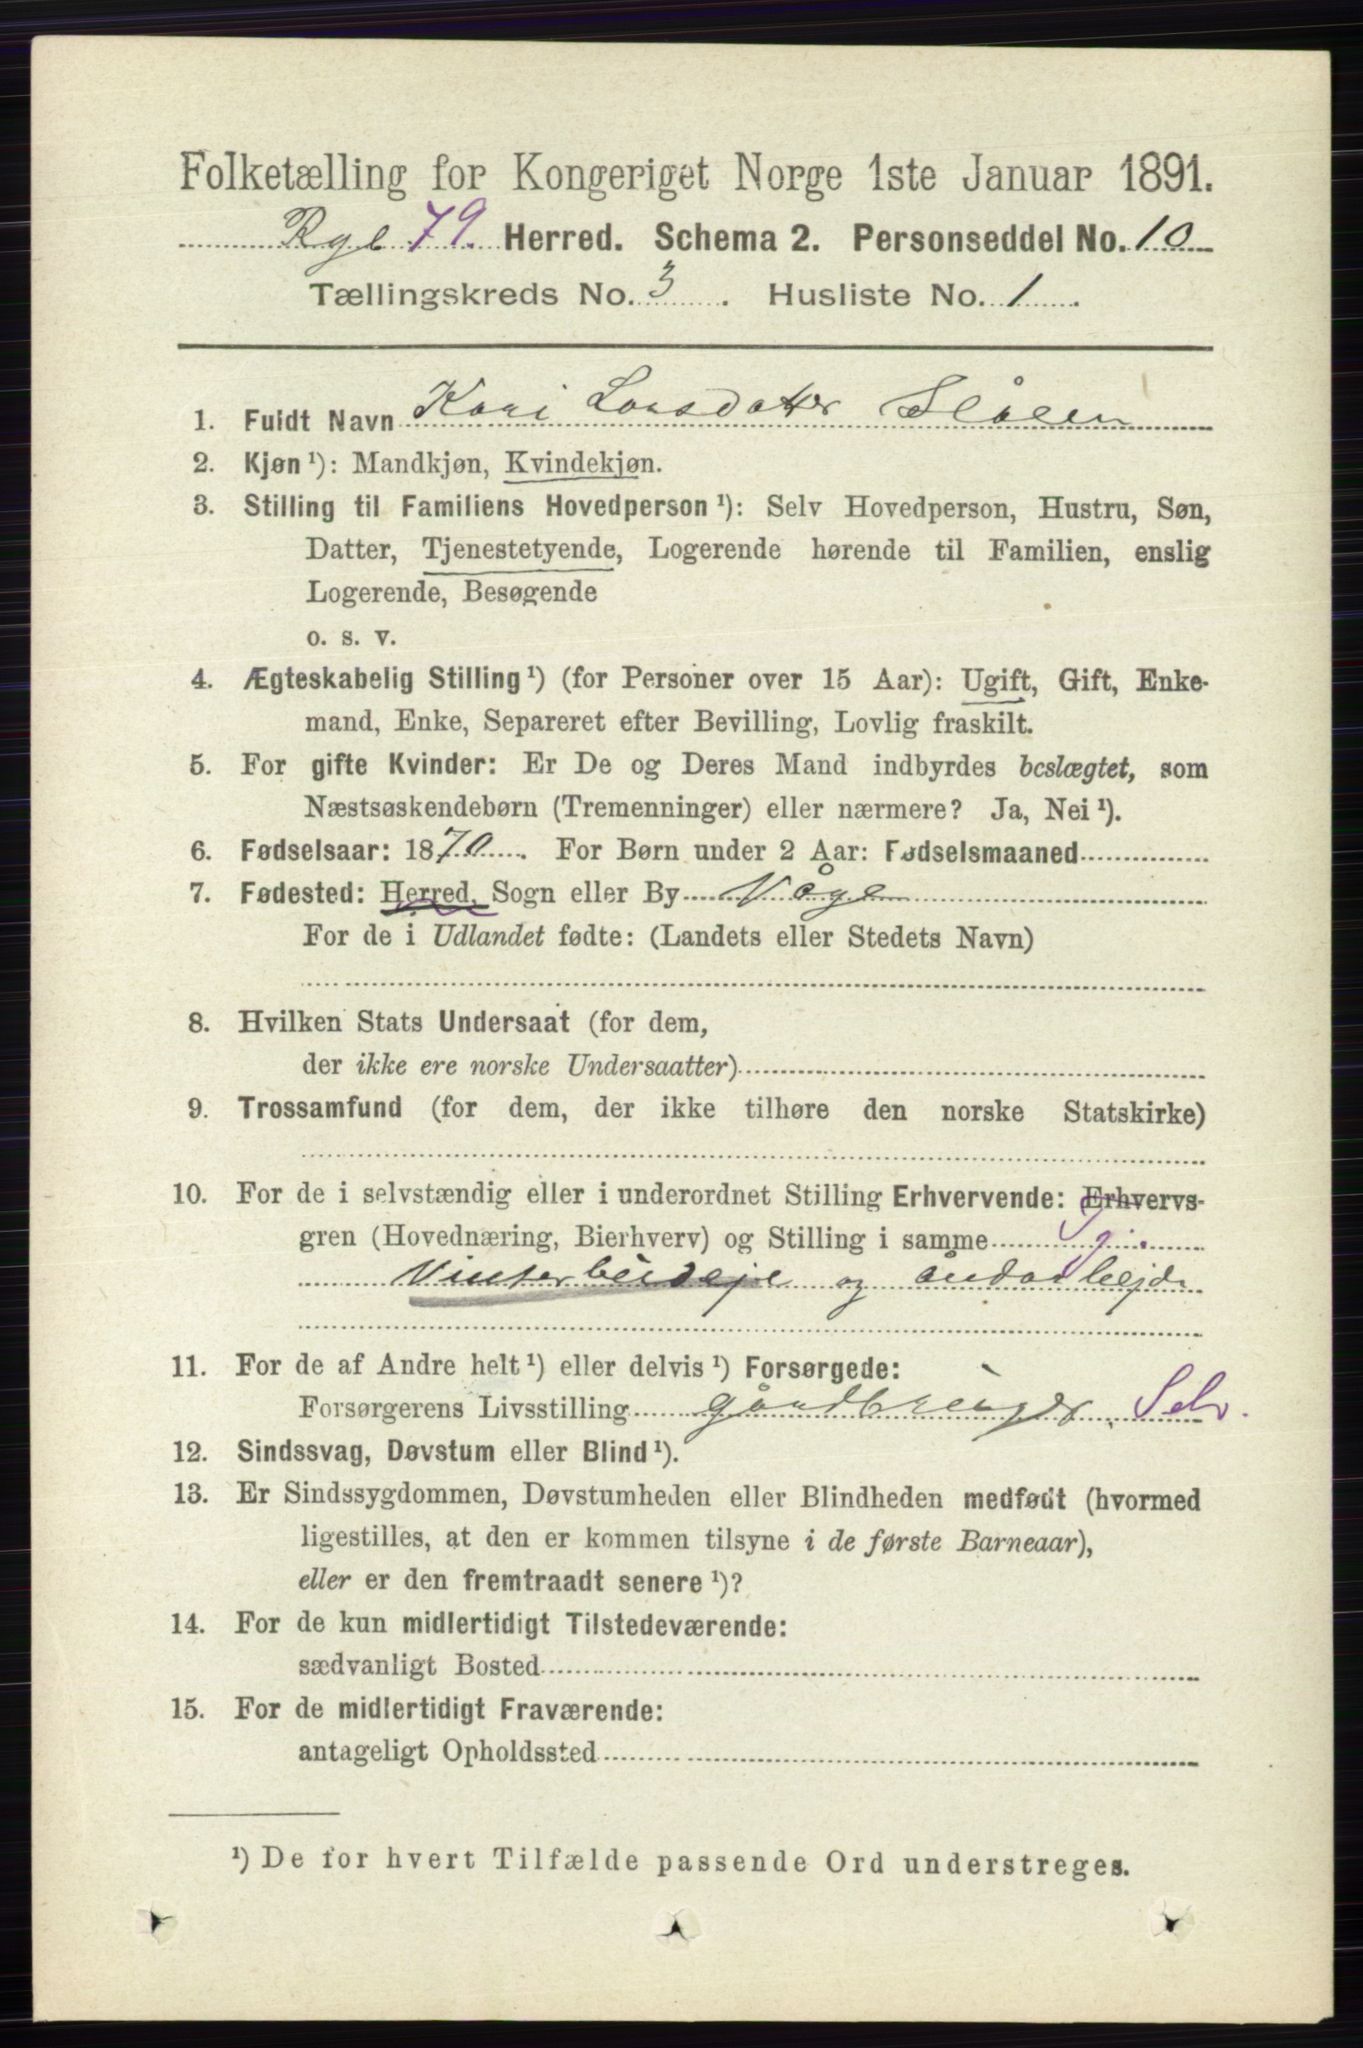 Folketælling for Kongeriget Norge 1ste Januar 1891.
79. Herred. Schema 2. Personseddel No. 10
Tællingskreds No. 3. Husliste No. 1.
1. Fuldt Navn Kari Larsdatter Slålien
2. Kjøn ¹): Mandkjøn, Kvindekjøn.
3. Stilling til Familiens Hovedperson ¹): Selv Hovedperson, Hustru, Søn,
Datter, Tjenestetyende, Logerende hørende til Familien, enslig
Logerende, Besøgende
o. s. v.
4. Ægteskabelig Stilling ¹) (for Personer over 15 Aar): Ugift, Gift, Enke-
mand, Enke, Separeret efter Bevilling, Lovlig fraskilt.
5. For gifte Kvinder: Er De og Deres Mand indbyrdes beslægtet, som
Næstsøskendebørn (Tremenninger) eller nærmere? Ja, Nei ¹).
6. Fødselsaar: 1870. For Børn under 2 Aar: Fødselsmaaned
7. Fødested: Herred, Sogn eller By Våge
For de i Udlandet fødte: (Landets eller Stedets Navn)
8. Hvilken Stats Undersaat (for dem,
der ikke ere norske Undersaatter)
9. Trossamfund (for dem, der ikke tilhøre den norske Statskirke)
10. For de i selvstændig eller i underordnet Stilling Erhvervende: Erhvervs-
gren (Hovednæring, Bierhverv) og Stilling i samme
og
11. For de af Andre helt ¹) eller delvis ¹) Forsørgede:
Forsørgerens Livsstilling gårdbruger. Selv.
12. Sindssvag, Døvstum eller Blind ¹).
13. Er Sindssygdommen, Døvstumheden eller Blindheden medfødt (hvormed
ligestilles, at den er kommen tilsyne i de første Barneaar),
eller er den fremtraadt senere ¹)?
14. For de kun midlertidigt Tilstedeværende:
sædvanligt Bosted
15. For de midlertidigt Fraværende:
antageligt Opholdssted
¹) De for hvert Tilfælde passende Ord understreges.